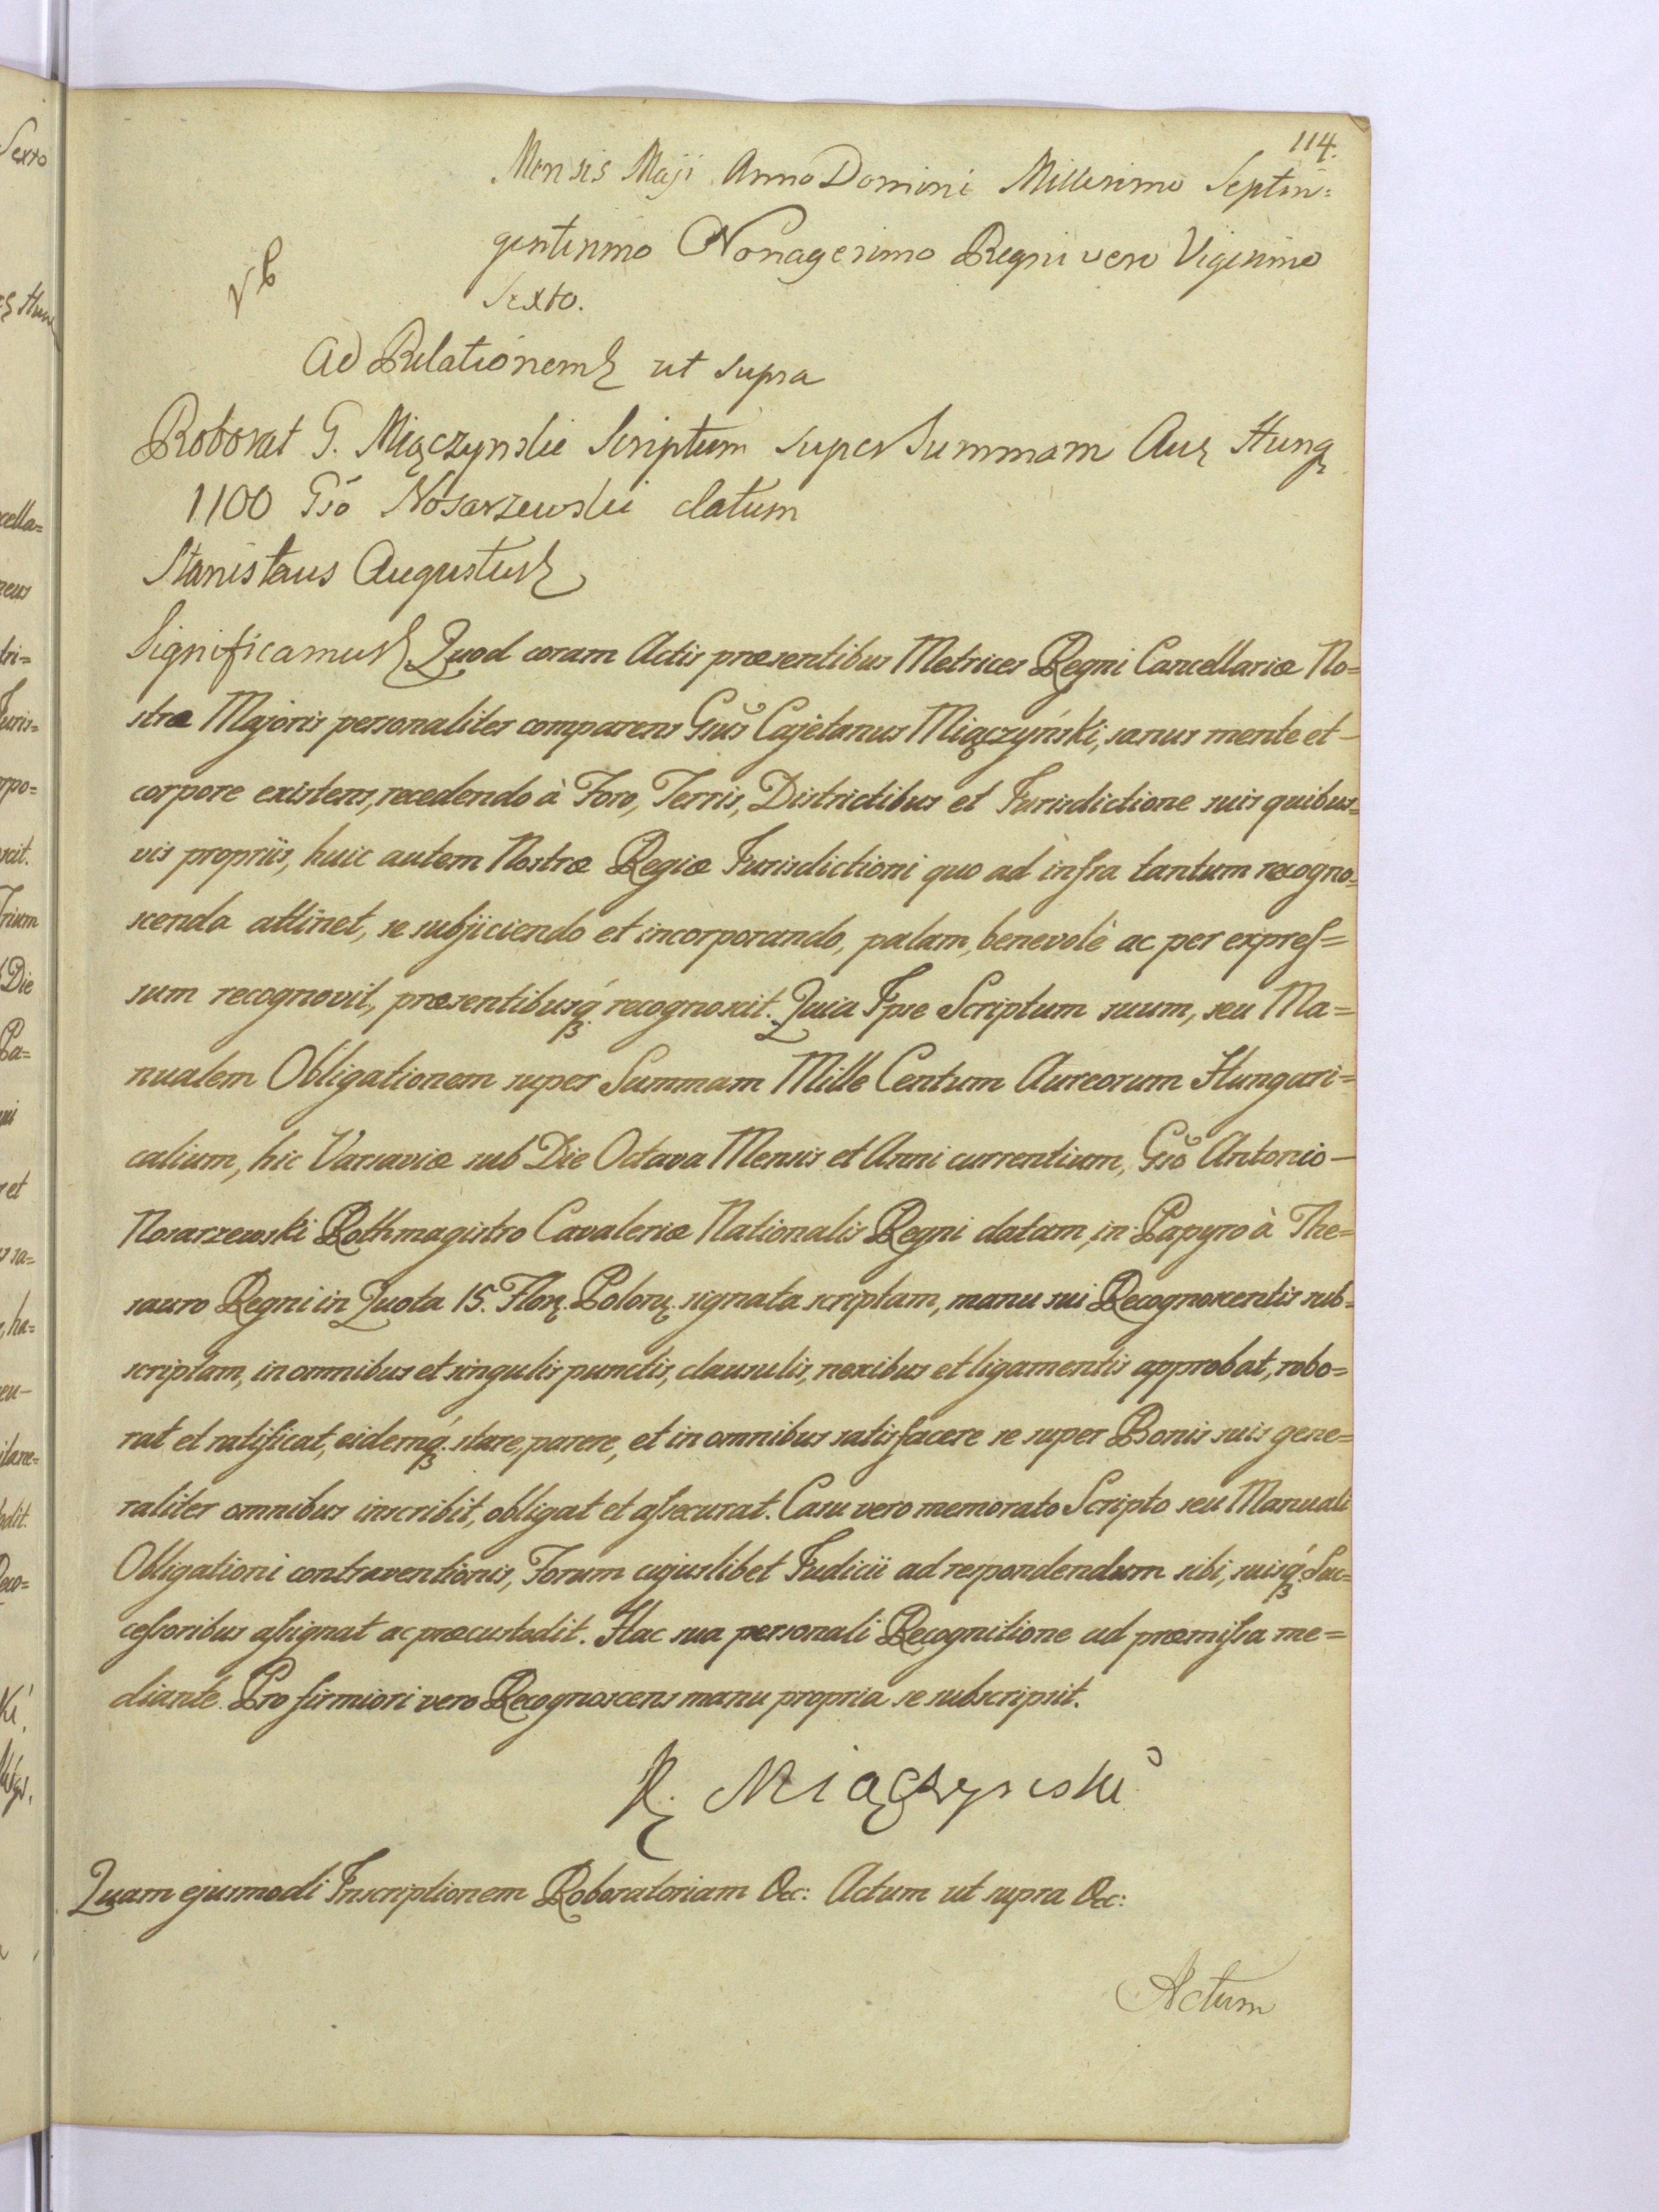 114.
Mensis Maji Anno Domini Millesimo Septin=
gentesimo Nonagesimo Regni vero Vigesimo
Sexto.
Ad Relationem ut supra
Roborat G. Miączynski Scriptum super Summam Aur Hung
1100 Gsō Nosarzewski datum
Stanislaus Augustus
Significamus Quod coram Actis præsentibus Metrices Regni Cancellariæ No=
stræ Majoris personaliter comparens Gsūs Cajetanus Miączyński, sanus mente et –
corpore existens, recedendo à Foro, Terris, Districtibus et Jurisdictione suis quibus=
vis propriis, huic autem Nostræ Regiæ Jurisdictioni quo ad infra tantum recogno=
scenda attinet, se subjiciendo et incorporando, palam, benevolè ac per expres=
sum recognovit, præsentibusq́ recognoscit. Quia Ipse Scriptum suum, seu Ma=
nualem Obligationem super Summam Mille Centum Aureorum Hungari=
calium, hic Varsaviæ sub Die Octava Mensis et Anni currentium, Gsō Antonio –
Nosarzewski Rothmagistro Cavaleriæ Nationalis Regni datam, in Papyro à The=
sauro Regni in Quota 15. Flor. Polon. signata scriptam, manu sui Recognoscentis sub=
scriptam, in omnibus et singulis punctis, clausulis, nexibus et ligamentis approbat, robo=
rat et ratificat, eidemq́. stare, parere, et in omnibus satisfacere se super Bonis suis gene=
raliter omnibus inscribit, obligat et assecurat. Casu vero memorato Scripto seu Manuali
Obligationi contraventionis, Forum cujuslibet Judicii ad respondendum sibi, suisq́. Suc=
cessoribus assignat ac præcustodit. Hac sua personali Recognitione ad præmissa me=
diante. Pro firmiori vero Recognoscens manu propria se subscripsit.
K. Miączynski
Quam ejusmodi Inscriptionem Roboratoriam &c: Actum ut supra &c:
Actum